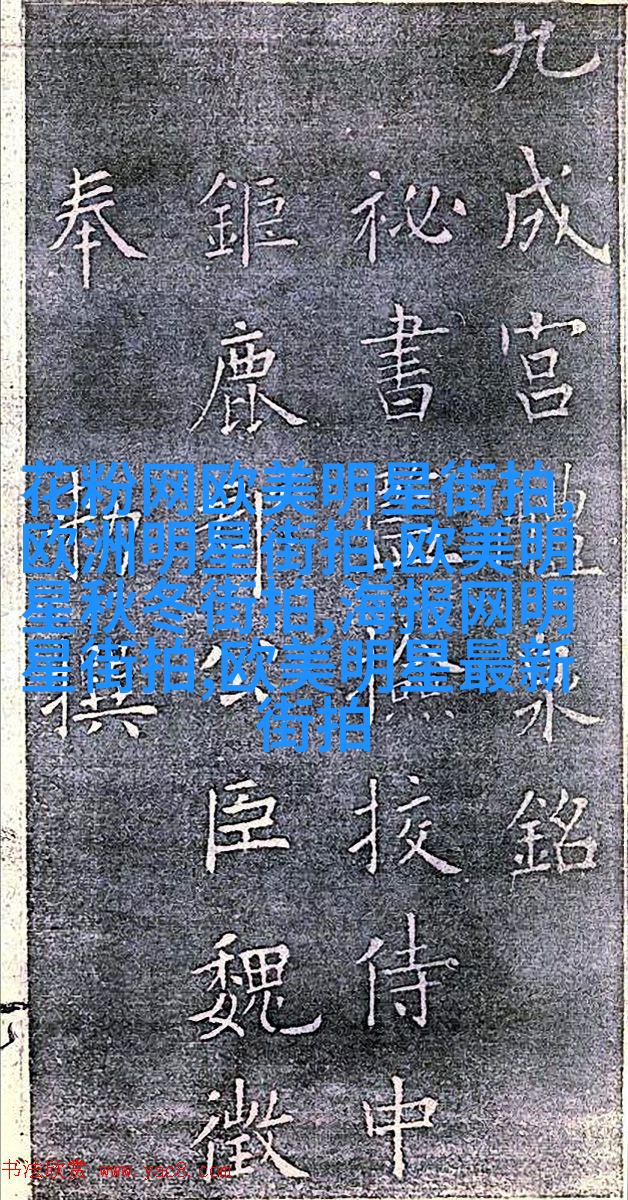 九成宮醴泉銘
祕書監檢挍侍中
鉅鹿郡公臣魏徵
奉勑撰
花粉网欧美明星街拍,
欧洲明星街拍,欧美明
星秋冬街拍,海报网明
星街拍,欧美明星最新
街拍
书法欣赏 www.yac8.com